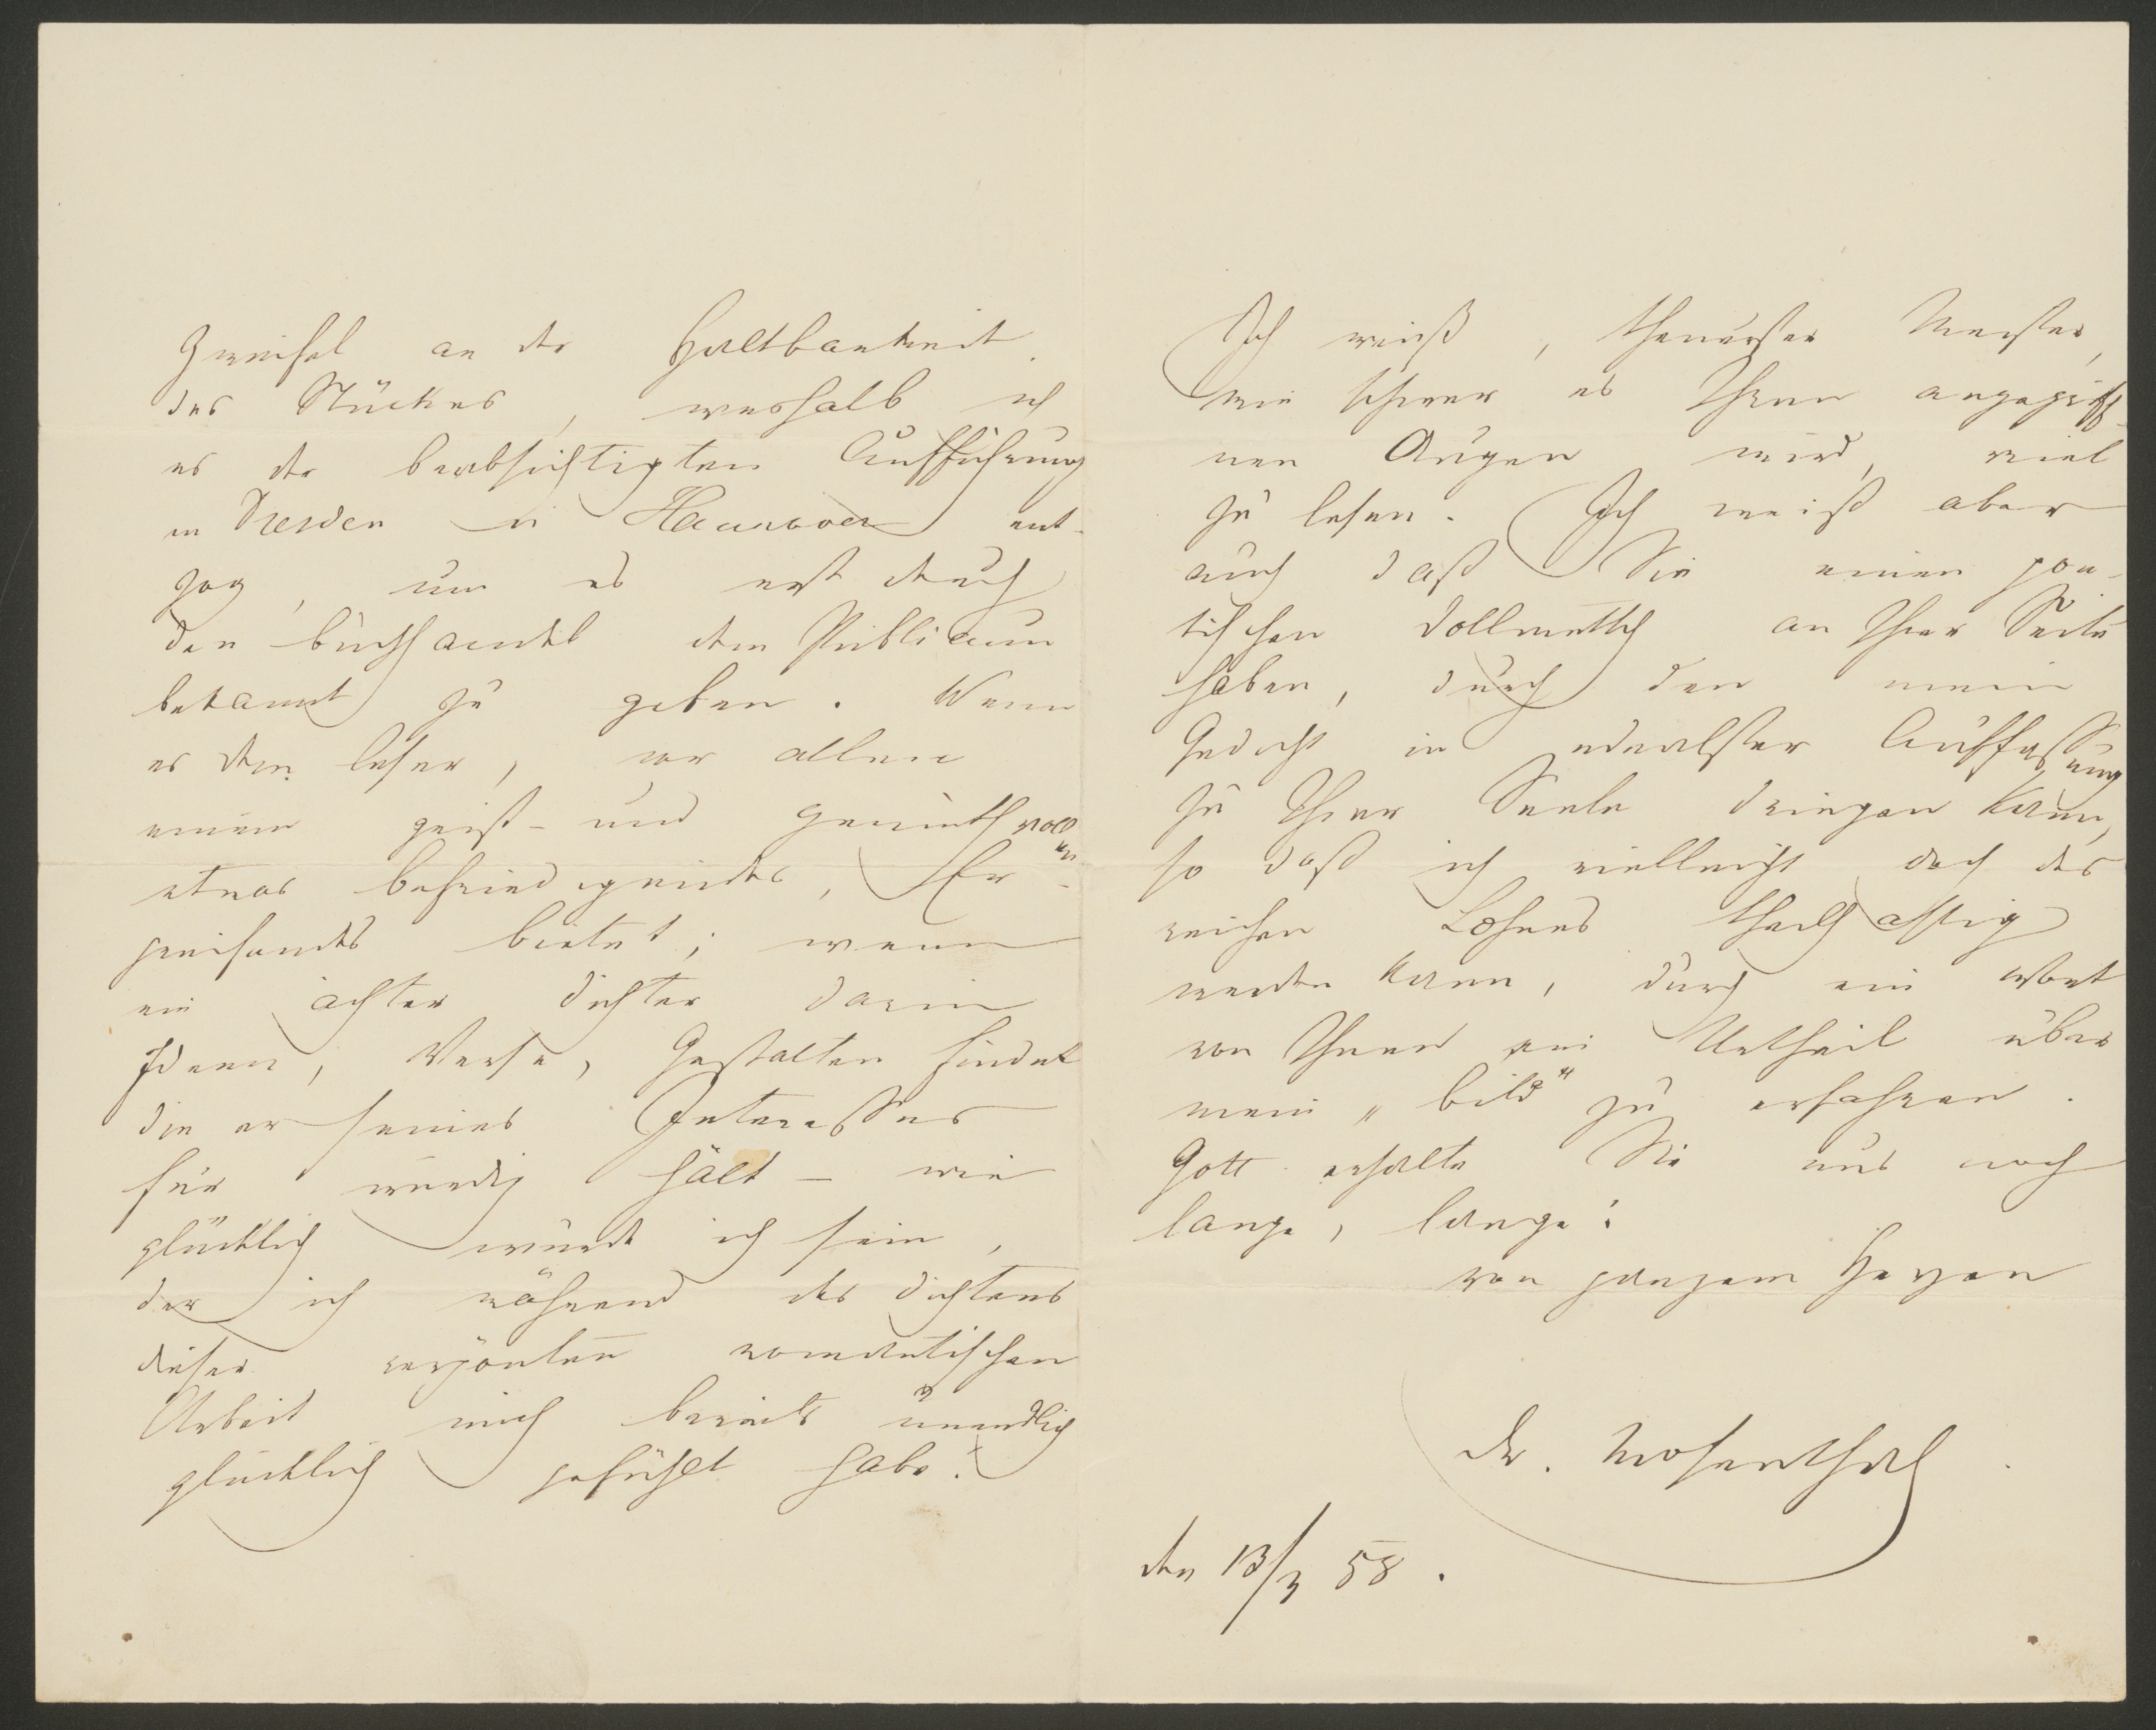 Zweifel an der Haltbarkeit
des Stückes, weshalb ich
es der beabsichtigten Aufführung
in Dresden u Hannover ent-
zog, um es erst durch
den Buchhandel dem Publicum
bekannt zu geben. Wenn
es dem Leser, vor allem
einem geist- und gemüthvollen
etwas befriedigendes, Er-
greifendes bietet; wenn
ein ächter Dichter darin
Ideen, Verse, Gestalten findet
die er seines Interesses
für würdig hält – wie
glücklich würde ich sein,
der ich während des Dichtens
dieser verpönten romantischen
Arbeit mich bereits unendlich
glücklich gefühlt habe!
Ich weiß, theuerster Meister,
wie schwer es Ihren angegriff-
nen Augen wird, viel
zu lesen. Ich weiß aber
auch daß Sie einen poe-
tischen Dollmetsch an Ihrer Seite
haben, durch den mein
Gedicht in idealster Auffassung
zu Ihrer Seele dringen kann,
so daß ich vielleicht doch des
reichen Lohnes theilhaftig
werden kann, durch ein Wort
von Ihnen ein Urtheil über
mein „Bild“ zu erfahren.
Gott erhalte Sie uns noch
lange, lange!
von ganzem Herzen
Dr. Mosenthal.
den 13/3 58.